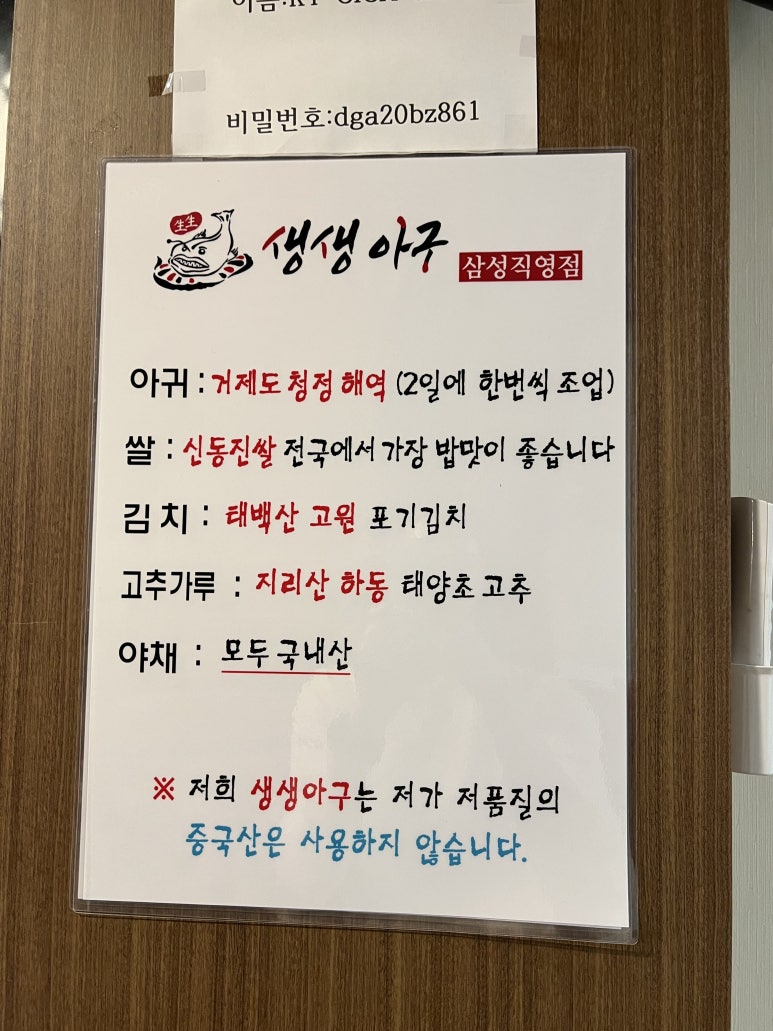 비밀번호:dga20bz861
生生
생생아구 삼성직영점
아귀 : 거제도 청정 해역 (2일에 한번씩 조업)
쌀 : 신동진쌀 전국에서 가장 밥맛이 좋습니다
김치 : 태백산 고원 포기김치
고추가루 : 지리산 하동 태양초 고추
야채 : 모두 국내산
※ 저희 생생아구는 저가 저품질의
중국산은 사용하지 않습니다.